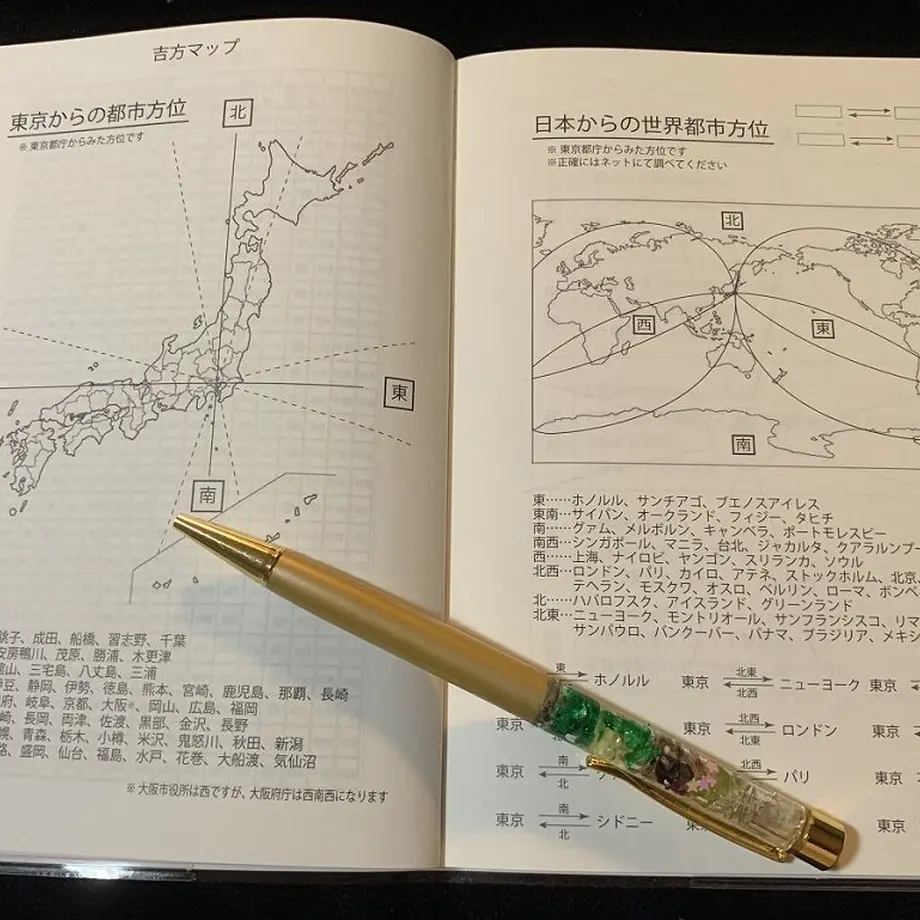 吉方マップ
東京からの都市方位
※ 東京都庁からみた方位です
北
東
南
銚子、成田、船橋、習志野、千葉
安房鴨川、茂原、勝浦、木更津
館山、三宅島、八丈島、三浦
伊豆、静岡、伊勢、徳島、熊本、宮崎、鹿児島、那覇、長崎
府、岐阜、京都、大阪※、岡山、広島、福岡
崎、長岡、両津、佐渡、黒部、金沢、長野
幌、青森、栃木、小樽、米沢、鬼怒川、秋田、新潟
路、盛岡、仙台、福島、水戸、花巻、大船渡、気仙沼
※ 大阪市役所は西ですが、大阪府庁は西南西になります
日本からの世界都市方位
※ 東京都庁からみた方位です
※正確にはネットにて調べてください
北
西
東
南
東……ホノルル、サンチアゴ、ブエノスアイレス
東南…サイパン、オークランド、フィジー、タヒチ
南……グァム、メルボルン、キャンベラ、ポートモレスビー
南西…シンガポール、マニラ、台北、ジャカルタ、クアラルンプー
西……上海、ナイロビ、ヤンゴン、スリランカ、ソウル
北西…ロンドン、パリ、カイロ、アテネ、ストックホルム、北京、
テヘラン、モスクワ、オスロ、ベルリン、ローマ、ボンベ
北……ハバロフスク、アイスランド、グリーンランド
北東…ニューヨーク、モントリオール、サンフランシスコ、リマ
サンパウロ、バンクーバー、パナマ、ブラジリア、メキシ
東 ホノルル
東京 北東 北西 ニューヨーク 東
東京 北西 北東 ロンドン 東
東京 南 北西 パリ 東
東京 南 北 シドニー 東京